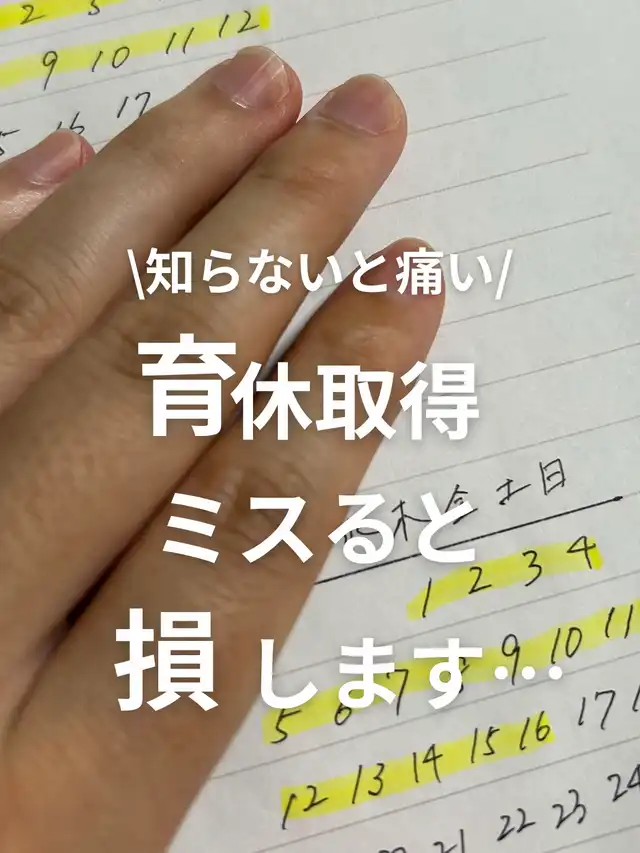 9 10 11 12
17
\知らないと痛い/
育休取得
ミスると
損します…
木金土日
1 2 3 4
5 6 7 8 9 10 11
12 13 14 15 16 17
21 22 23 24